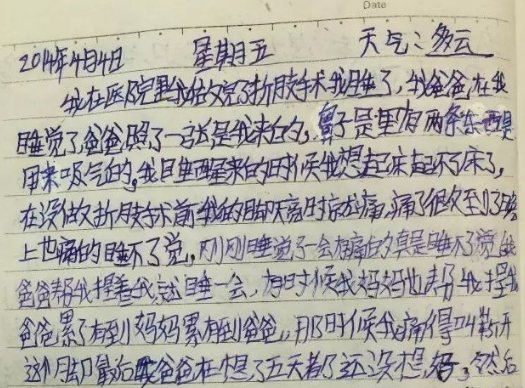 Date
2014年4月4日 星期五 天气:多云
我在医院里我做完了折肢手术我睡了,我爸爸在我
睡觉了爸爸照了一张是我来的,鼻子是里有两条东西是
用来吸气的,我目垂醒来的时候我想起床起不了床了,
在没做折肢手术前我的脚只离时候痛,痛了很久至小了晚
上也痛的睡不了觉,刚刚睡觉了一会有痛的真是睡不了觉我
爸爸帮我捏着我就睡一会,有时候我妈妈也帮我捏我
爸爸累了有到妈妈累有到爸爸,那时候我痛得叫斩开
这个脚最后爸爸在想了五天都了还没想好,然后